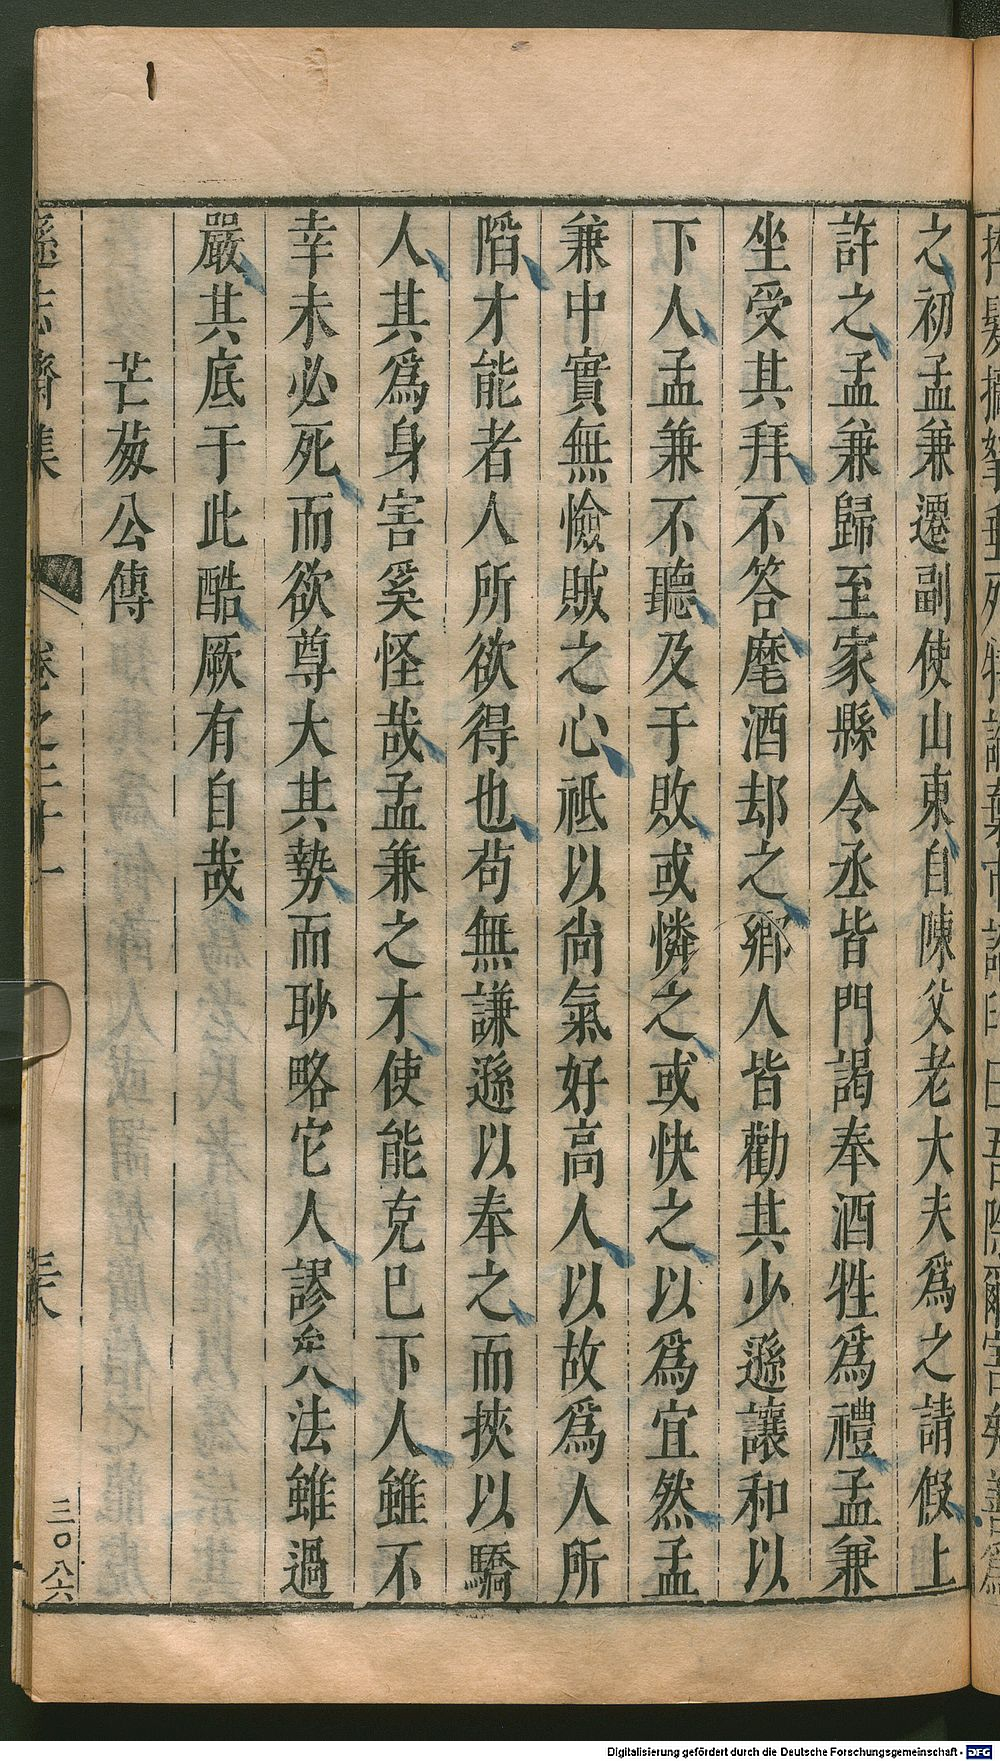 之初孟兼遷副使山東自陳父老大夫爲之請假上
許之孟兼歸至家縣令丞皆門謁奉酒牲爲禮孟兼
坐受其拜不答麾酒却之鄉人皆勸其少遜讓和以
下人孟兼不聽及于敗或憐之或快之以爲宜然孟
兼中實無憸賊之心祇以尚氣好高人以故爲人所
陷才能者人所欲得也苟無謙遜以奉之而挾以驕
人其爲身害奚怪哉孟兼之才使能克己下人雖不
幸未必死而欲尊大其勢而眇略它人謬矣法雖過
嚴其底于此酷厥有自哉
芒芴公傳
遜志齋集
卷之二十一
三十八
三〇八六
Digitalisierung gefördert durch die Deutsche Forschungsgemeinschaft - DFG